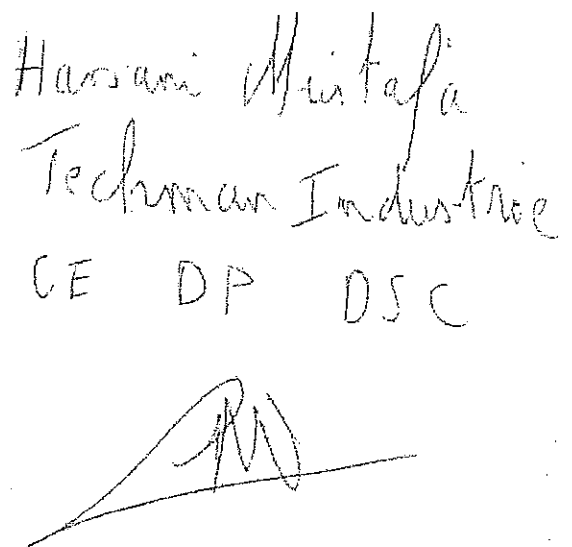 Hassani Mustafa
Techman Industrie
CE DP DSC